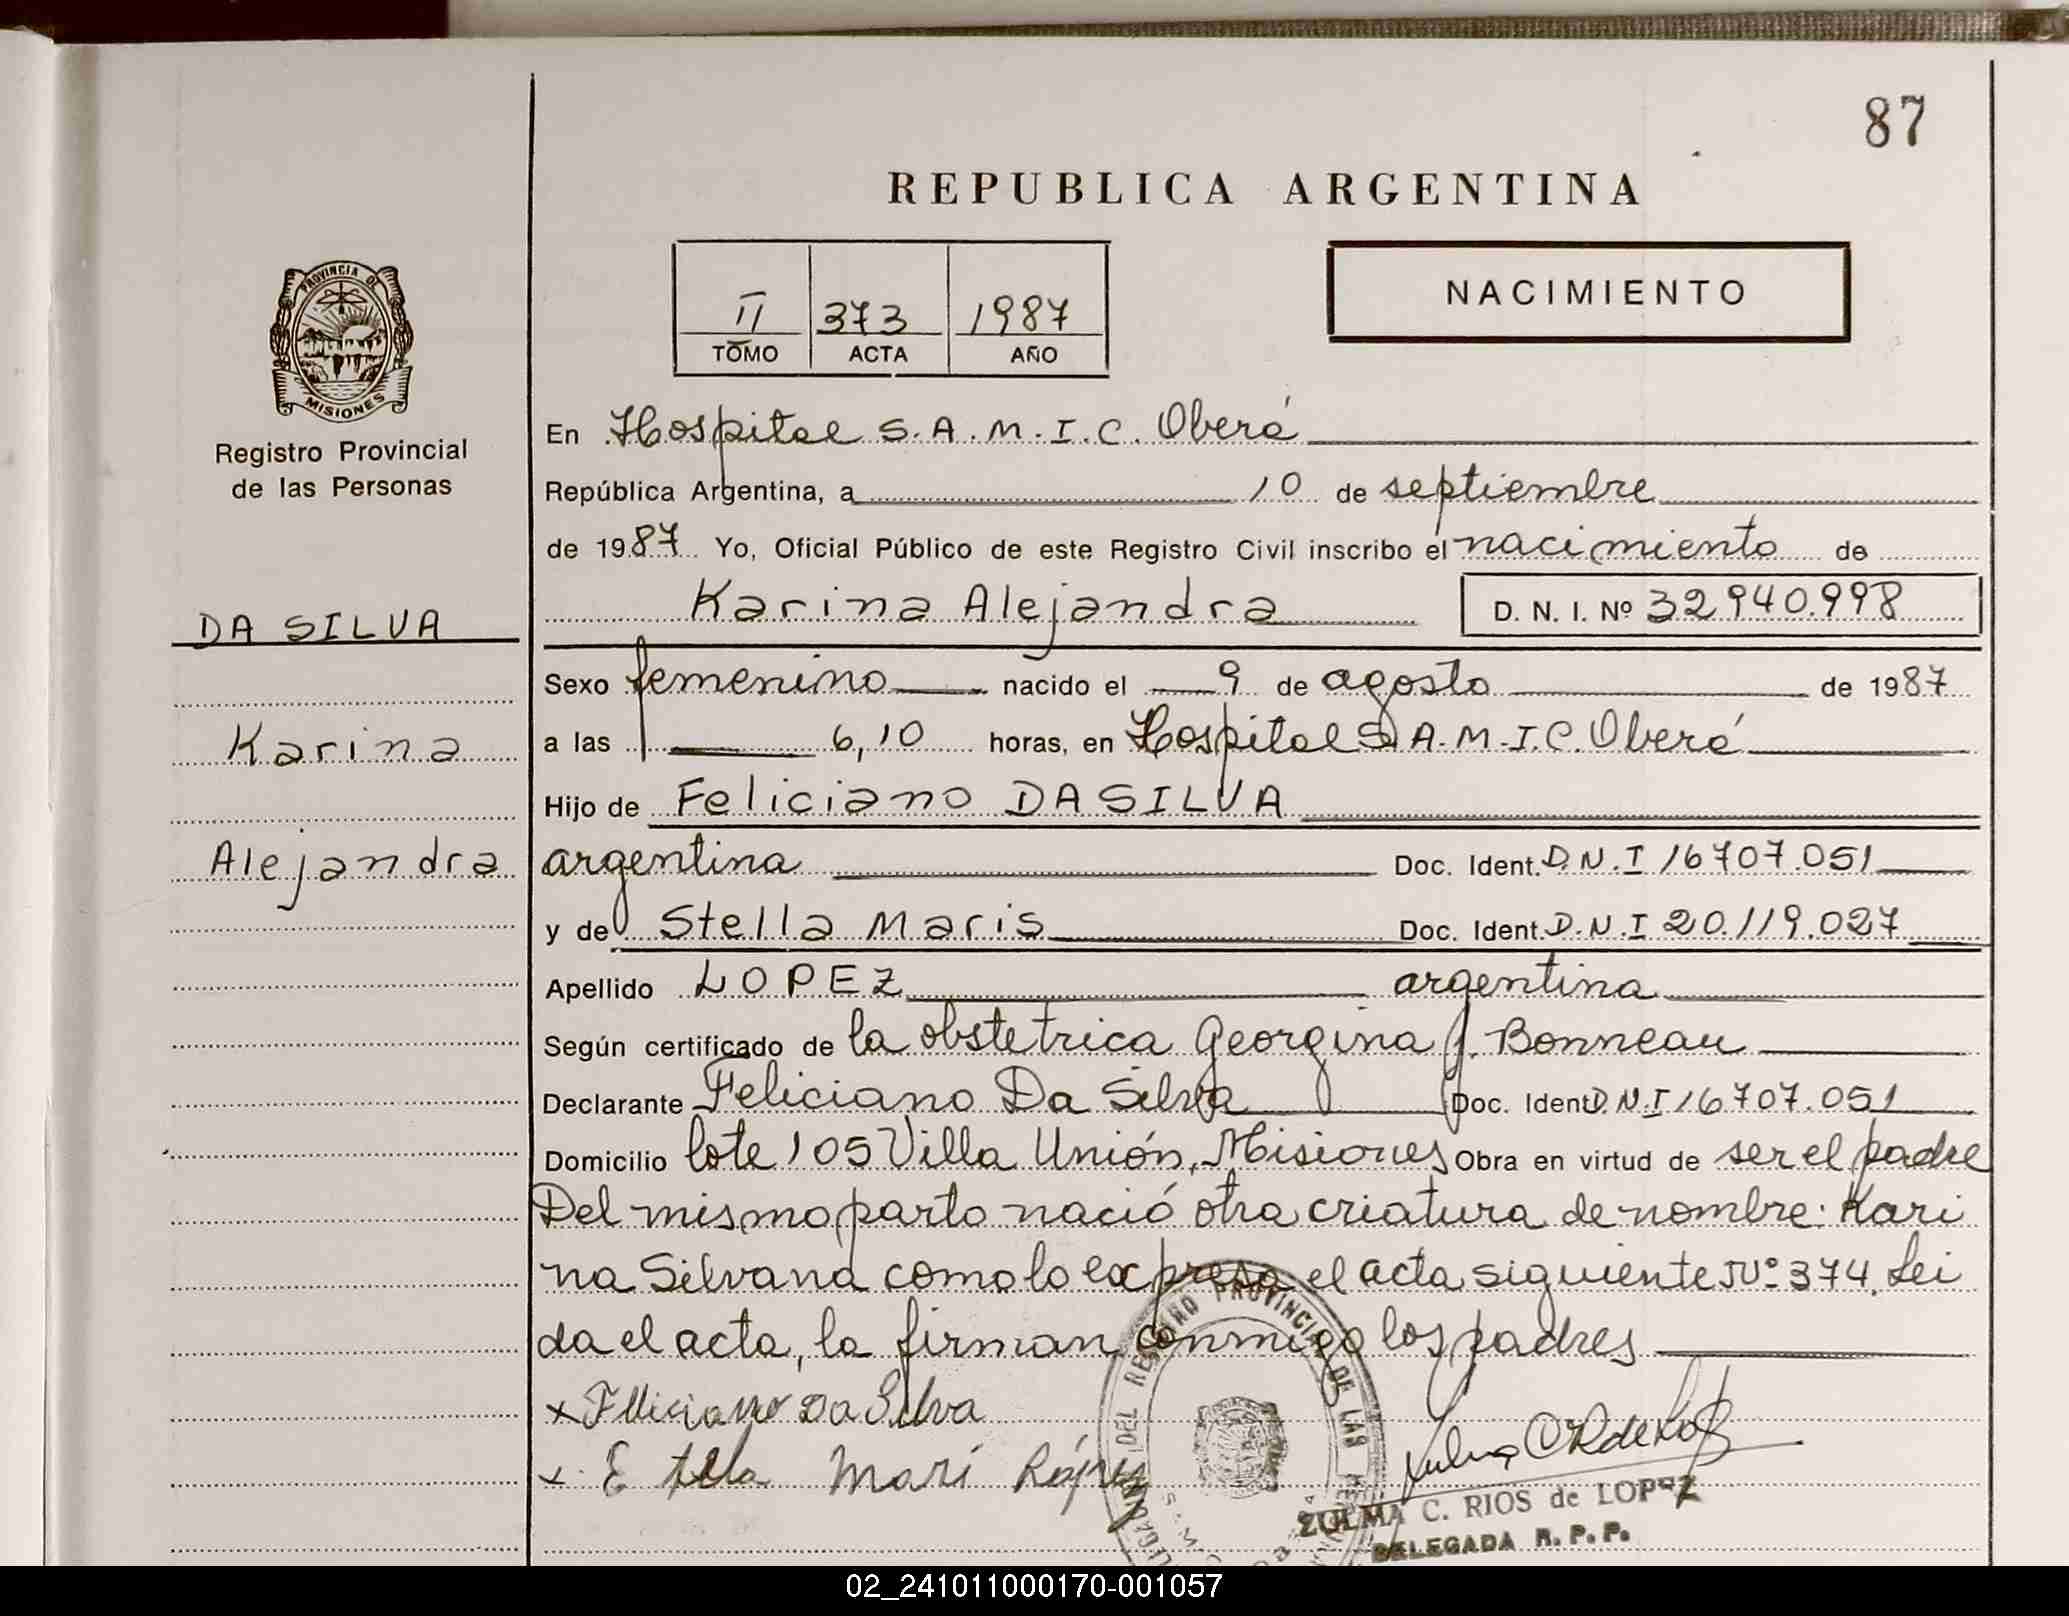 87
REPUBLICA ARGENTINA
II 373 1987
TOMO ACTA AÑO
NACIMIENTO
PROVINCIA DE
MISIONES
Registro Provincial
de las Personas
DA SILVA
Karina
Alejandra
En Hospital S.A.M.I.C. Oberá
República Argentina, a 10 de septiembre
de 1987 Yo, Oficial Público de este Registro Civil inscribo el nacimiento de
Karina Alejandra D. N. I. Nº 32.940.998
Sexo femenino nacido el 9 de agosto de 1987
a las 6,10 horas, en Hospital S.A.M.I.C. Oberá
Hijo de Feliciano DA SILVA
argentina Doc. Ident. D.N.I 16707.051
y de Stella Maris Doc. Ident. D.N.I 20.119.027
Apellido LOPEZ argentina
Según certificado de la obstetrica Georgina J. Bonneau
Declarante Feliciano Da Silva Doc. Ident D.N.I 16707.051
Domicilio lote 105 Villa Unión, Misiones Obra en virtud de ser el padre
Del mismo parto nació otra criatura de nombre: Kari
na Silvana como lo expresa el acta siguiente Nº 374. Lei
da el acta, la firman conmigo los padres
x Feliciano Da Silva
x E tella Mari
DELEGACION DEL REGISTRO PROVINCIAL DE LAS
ZULMA C. RIOS de LOPEZ
DELEGADA R. P. P.
02_241011000170-001057